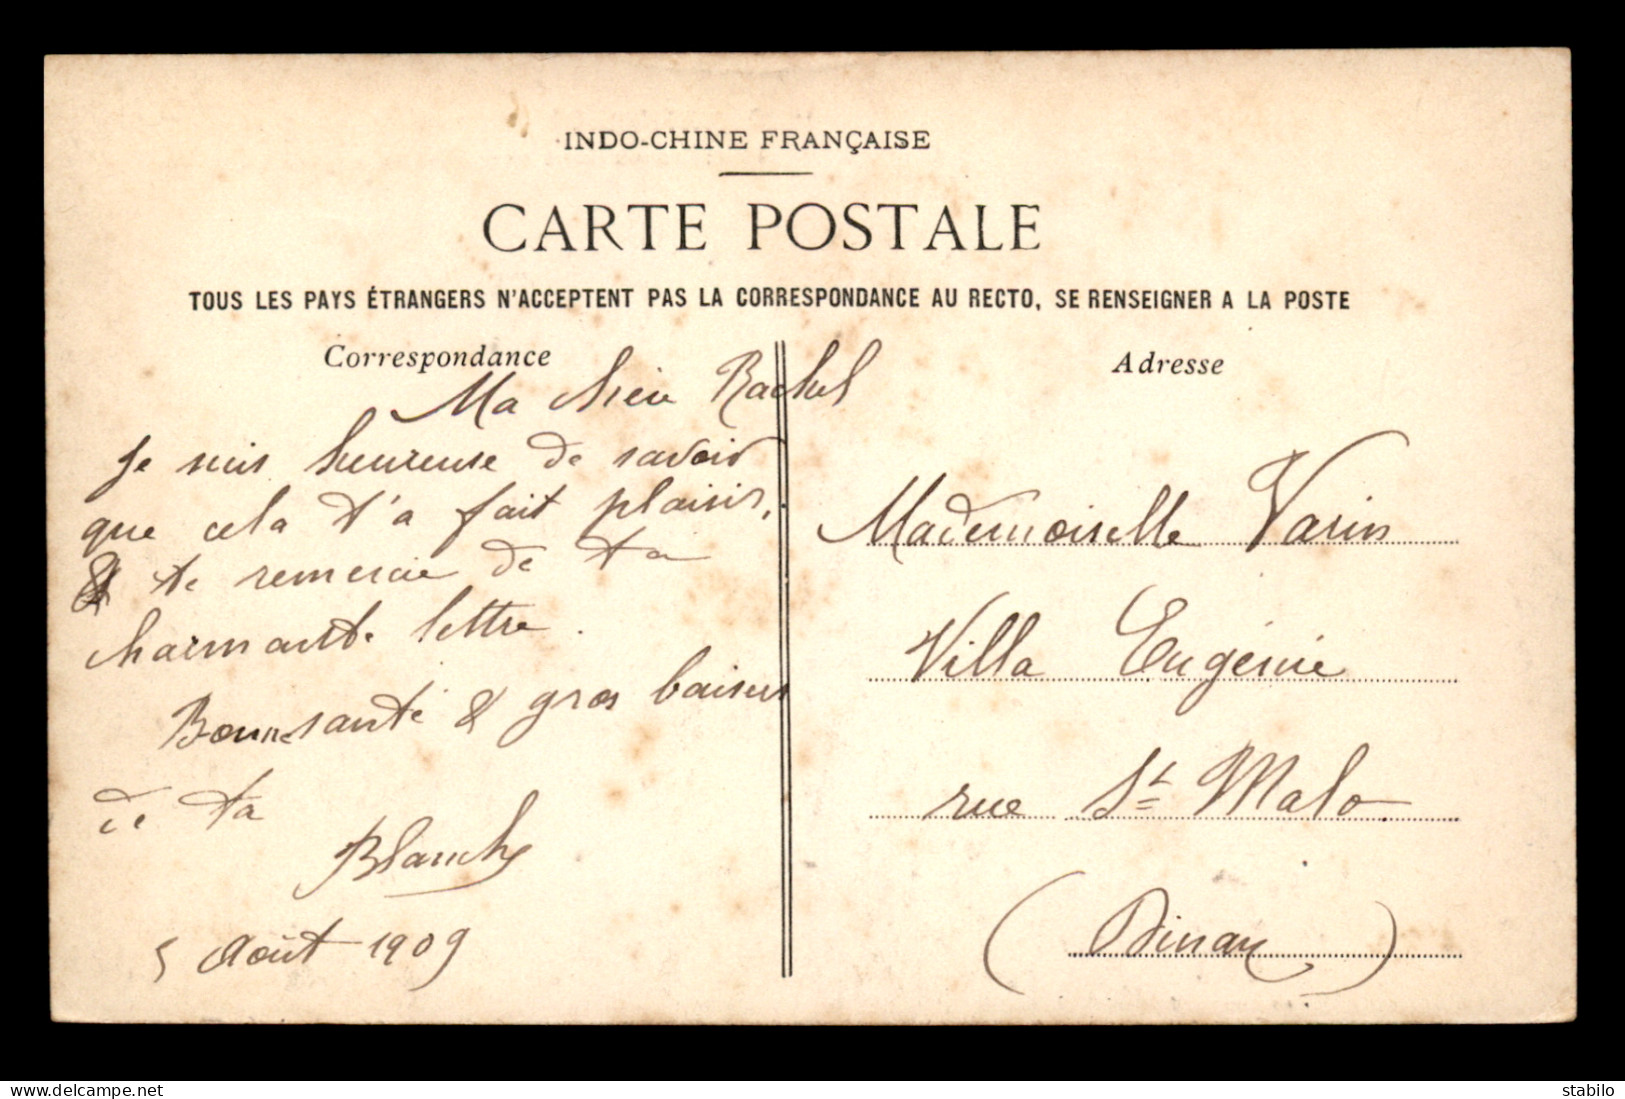 INDO-CHINE FRANÇAISE
CARTE POSTALE
TOUS LES PAYS ÉTRANGERS N'ACCEPTENT PAS LA CORRESPONDANCE AU RECTO, SE RENSEIGNER A LA POSTE
Correspondance
Ma chère Rachel
Je suis heureuse de savoir
que cela t'a fait plaisir,
& te remercie de ta
charmante lettre.
Bonne santé & gros baisers
de ta
Blanche
5 Août 1909
Adresse
Mademoiselle Varin
Villa Eugénie
rue St Malo
(Dinan)
www.delcampe.net
stabilo